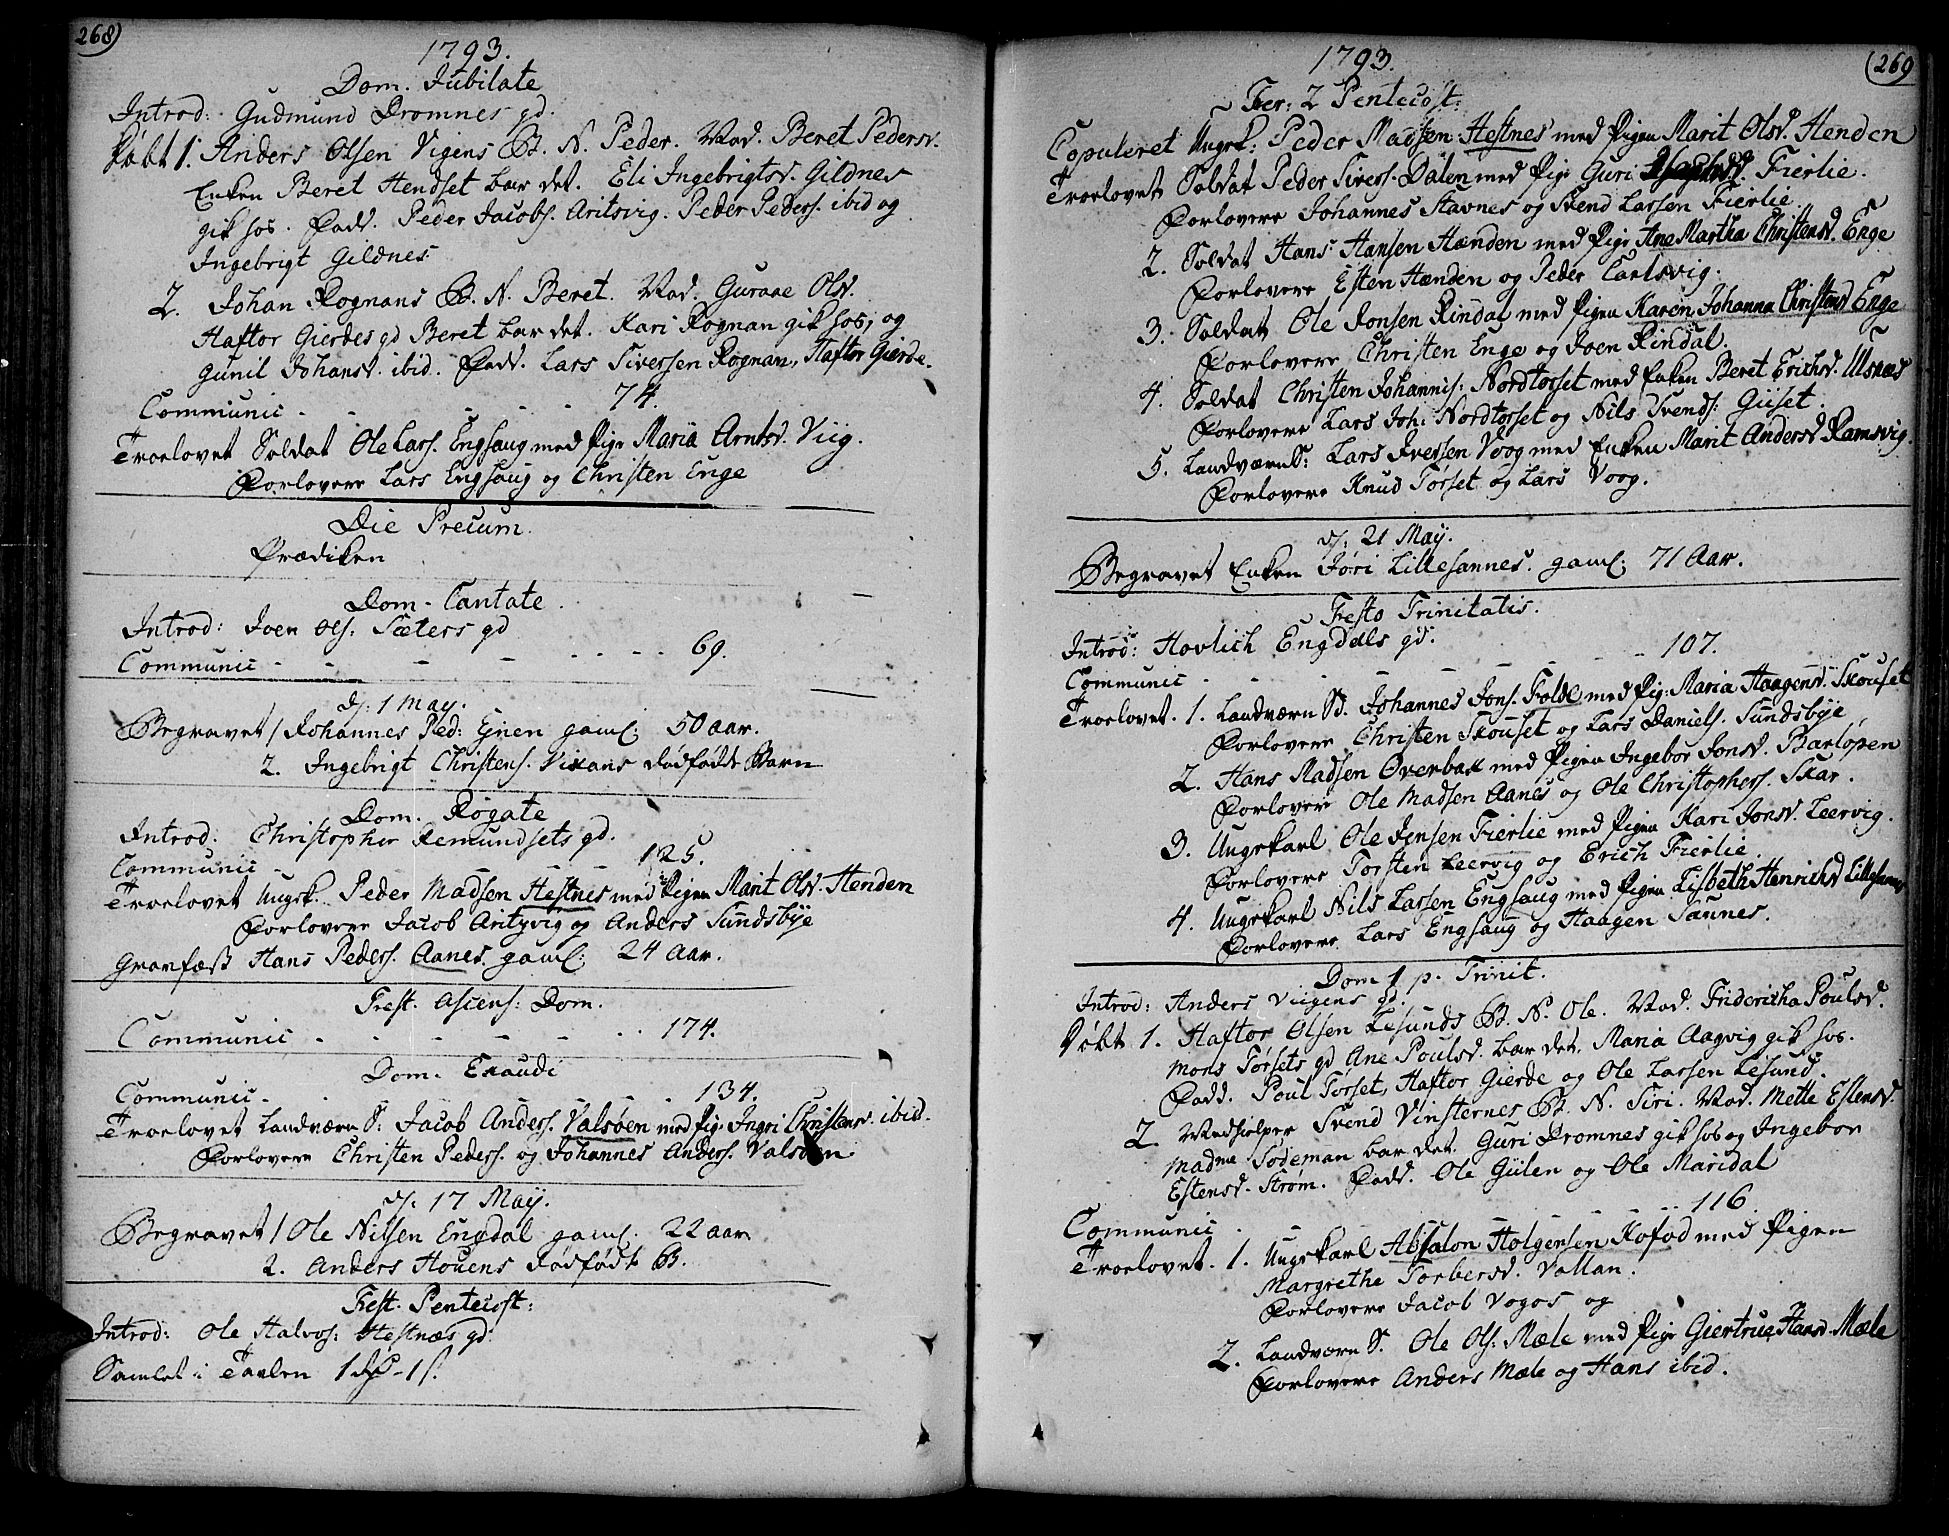 268)
1793.
Dom. Jubilate
Introd: Gudmund Dromnes gd.
Døbt 1. Anders Olsen Vigens B. N. Peder. Mod. Beret Pedersd.
Enken Beret Hendset bar det. Eli Ingebrigtsd. Gildnes
gik hos. Fadd. Peder Jacobs. Aritsvig. Peder Peders. ibid og
Ingebrigt Gildnes
2. Johan Rognans B. N. Beret. Mod. Guraae Olsd.
Haftor Gierdes gd Beret bar det. Kari Rognan gik hos, og
Gunil Johansd. ibid. Fadd. Lars Siversen Rognan, Haftor Gierde.
Communic - - - - - 74.
Troelovet Soldat Ole Lars. Engsaug med Pige Maria Arntsd. Viig.
Forlovere Lars Engsaug og Christen Enge
Die Precum.
Prædiken
Dom. Cantate
Introd: Joen Ols. Sæters gd
Communic - - - - - - 69.
d. 1 May.
Begravet 1 Johannes Ped: Gnen gaml: 50 aar.
2. Ingebrigt Christens. Vikans dødfødt Barn
Dom. Rogate
Introd. Christopher Remundsets gd.
Communic - - - 125.
Troelovet Ungk. Peder Madsen Hestnes med Pigen Marit Olsd. Henden
Forlovere Jacob Aritzvig og Anders Sundsbye
Gravfæst Hans Peders. Aanes. gaml: 24 Aar.
Fest. Ascens: Dom.
Communic - - - - - 174.
Dom. Exaudi
Communic. - - - 134.
Troelovet Landværn S: Jacob Anders. Valsøen med Pig. Ingri Christensd. ibid.
Forlovere Christen Peders. og Johannes Anders. Valsøen
d. 17 May.
Begravet 1 Ole Nilsen Engdal gaml. 22 aar
2. Anders Houens dødfødt B.
Fest. Pentecost:
Introd: Ole Halvos: Hestnæs gd.
Samlet i Tavlen 1 - 1 s.
(269
1793.
Fer: 2 Pentecost:
Copuleret Ungk: Peder Madsen Hestnes med Pigen Marit Olsd. Henden
Troelovet Soldat Peder Sivers. Dalen med Pige Guri Fierlie.
Forlovere Johannes Stavnes og Svend Larsen Fierlie.
2. Soldat Hans Hansen Hænden med Pige Ane Martha Christensd. Enge
Forlovere Esten Hænden og Peder Carlsvig.
3. Soldat Ole Jonsen Rindal med Pigen Karen Johanna Christensd Enge
Forlovere Christen Enge og Joen Rindal.
4. Soldat Christen Johannis: Nordtorset med Enken Beret Erichsd. Ulsnes
Forlovere Lars Joh: Nordtorset og Nils Svends: Giiset.
5. LandværnS: Lars Iversen Voog med Enken Marit Andersd Ramsvig.
Forlovere Knud Torset og Lars Voog.
d. 21 May.
Begravet Enken Jøri Lillesannes. gaml: 71 Aar.
Festo Trinitatis.
Introd: Hovlich Engdals gd.
Communic - - - - - 107.
Troelovet. 1. Landværn Sd. Johannes Jons. Folde med Pig: Maria Haagensd. Skouset
Forlovere Christen Skouset og Lars Daniels. Sundsbye
2. Hans Madsen Overbak med Pigen Ingebor Jonsd. Barlopen
Forlovere Ole Madsen Aanes og Ole Christophers. Skar.
3. Ungekarl Ole Jensen Fierlie med Pigen Kari Jonsd. Leervig.
Forlovere Torsten Leervig og Erich Fierlie.
4. Ungekarl Nils Larsen Engsaug med Pigen Lisbeth Henrichsd Lillesannes
Forlovere Lars Engsaug og Haagen Sannes.
Dom 1 p. Trinit.
Introd: Anders Viigens gd.
Døbt 1. Haftor Olsen Lesunds B. N. Ole. Mod. Friderisha Poulsd.
Mons Torsets gd Ane Poulsd. bar det. Maria Aagvig gik hos.
Fadd. Poul Torset, Haftor Gierde og Ole Larsen Lesund.
2. Medhielper Svend Vinsternes B. N. Siri. Mod. Mette Estensd.
Madme Sodeman bar det. Guri Dromnes gik hos og Ingebor
Estensd. Strøm. Fadd. Ole Gülen og Ole Maridal
Communic - - - - - 116.
Troelovet. 1. Ungekarl Absalon Holgensen Kofod med Pigen
Margrethe Torbersd. Vallan.
Forlovere Jacob Vogos og
2. Landværn S. Ole Ols: Mæle med Pige Giertrug Hansd. Mæle
Forlovere Anders Mæle og Hans ibid.